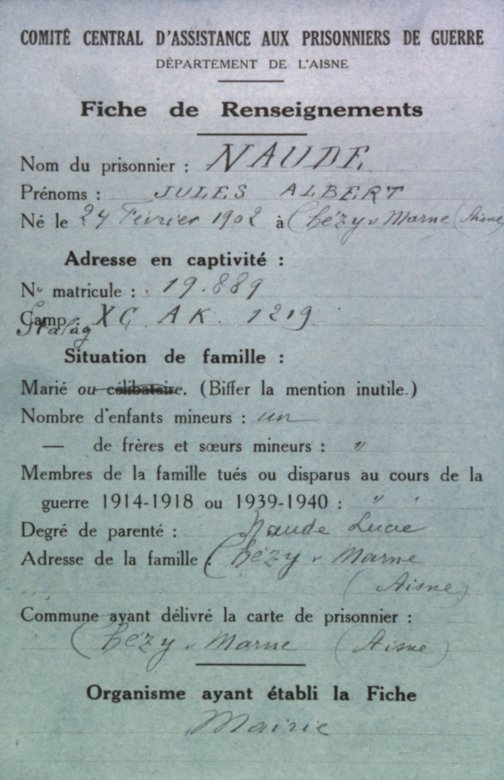 COMITÉ CENTRAL D'ASSISTANCE AUX PRISONNIERS DE GUERRE
DÉPARTEMENT DE L'AISNE
Fiche de Renseignements
Nom du prisonnier : NAUDE
Prénoms : JULES ALBERT
Né le 24 Février 1902 à Chézy s/ Marne (Aisne)
Adresse en captivité :
N° matricule : 19.889
Camp : XC AK. 1219
Stalag
Situation de famille :
Marié ou célibataire. (Biffer la mention inutile.)
Nombre d'enfants mineurs : un
— de frères et sœurs mineurs : "
Membres de la famille tués ou disparus au cours de la
guerre 1914-1918 ou 1939-1940 : "
Degré de parenté : Naude Lucie
Adresse de la famille : Chézy s/ Marne
(Aisne)
Commune ayant délivré la carte de prisonnier :
Chézy s/ Marne (Aisne)
Organisme ayant établi la Fiche
Mairie